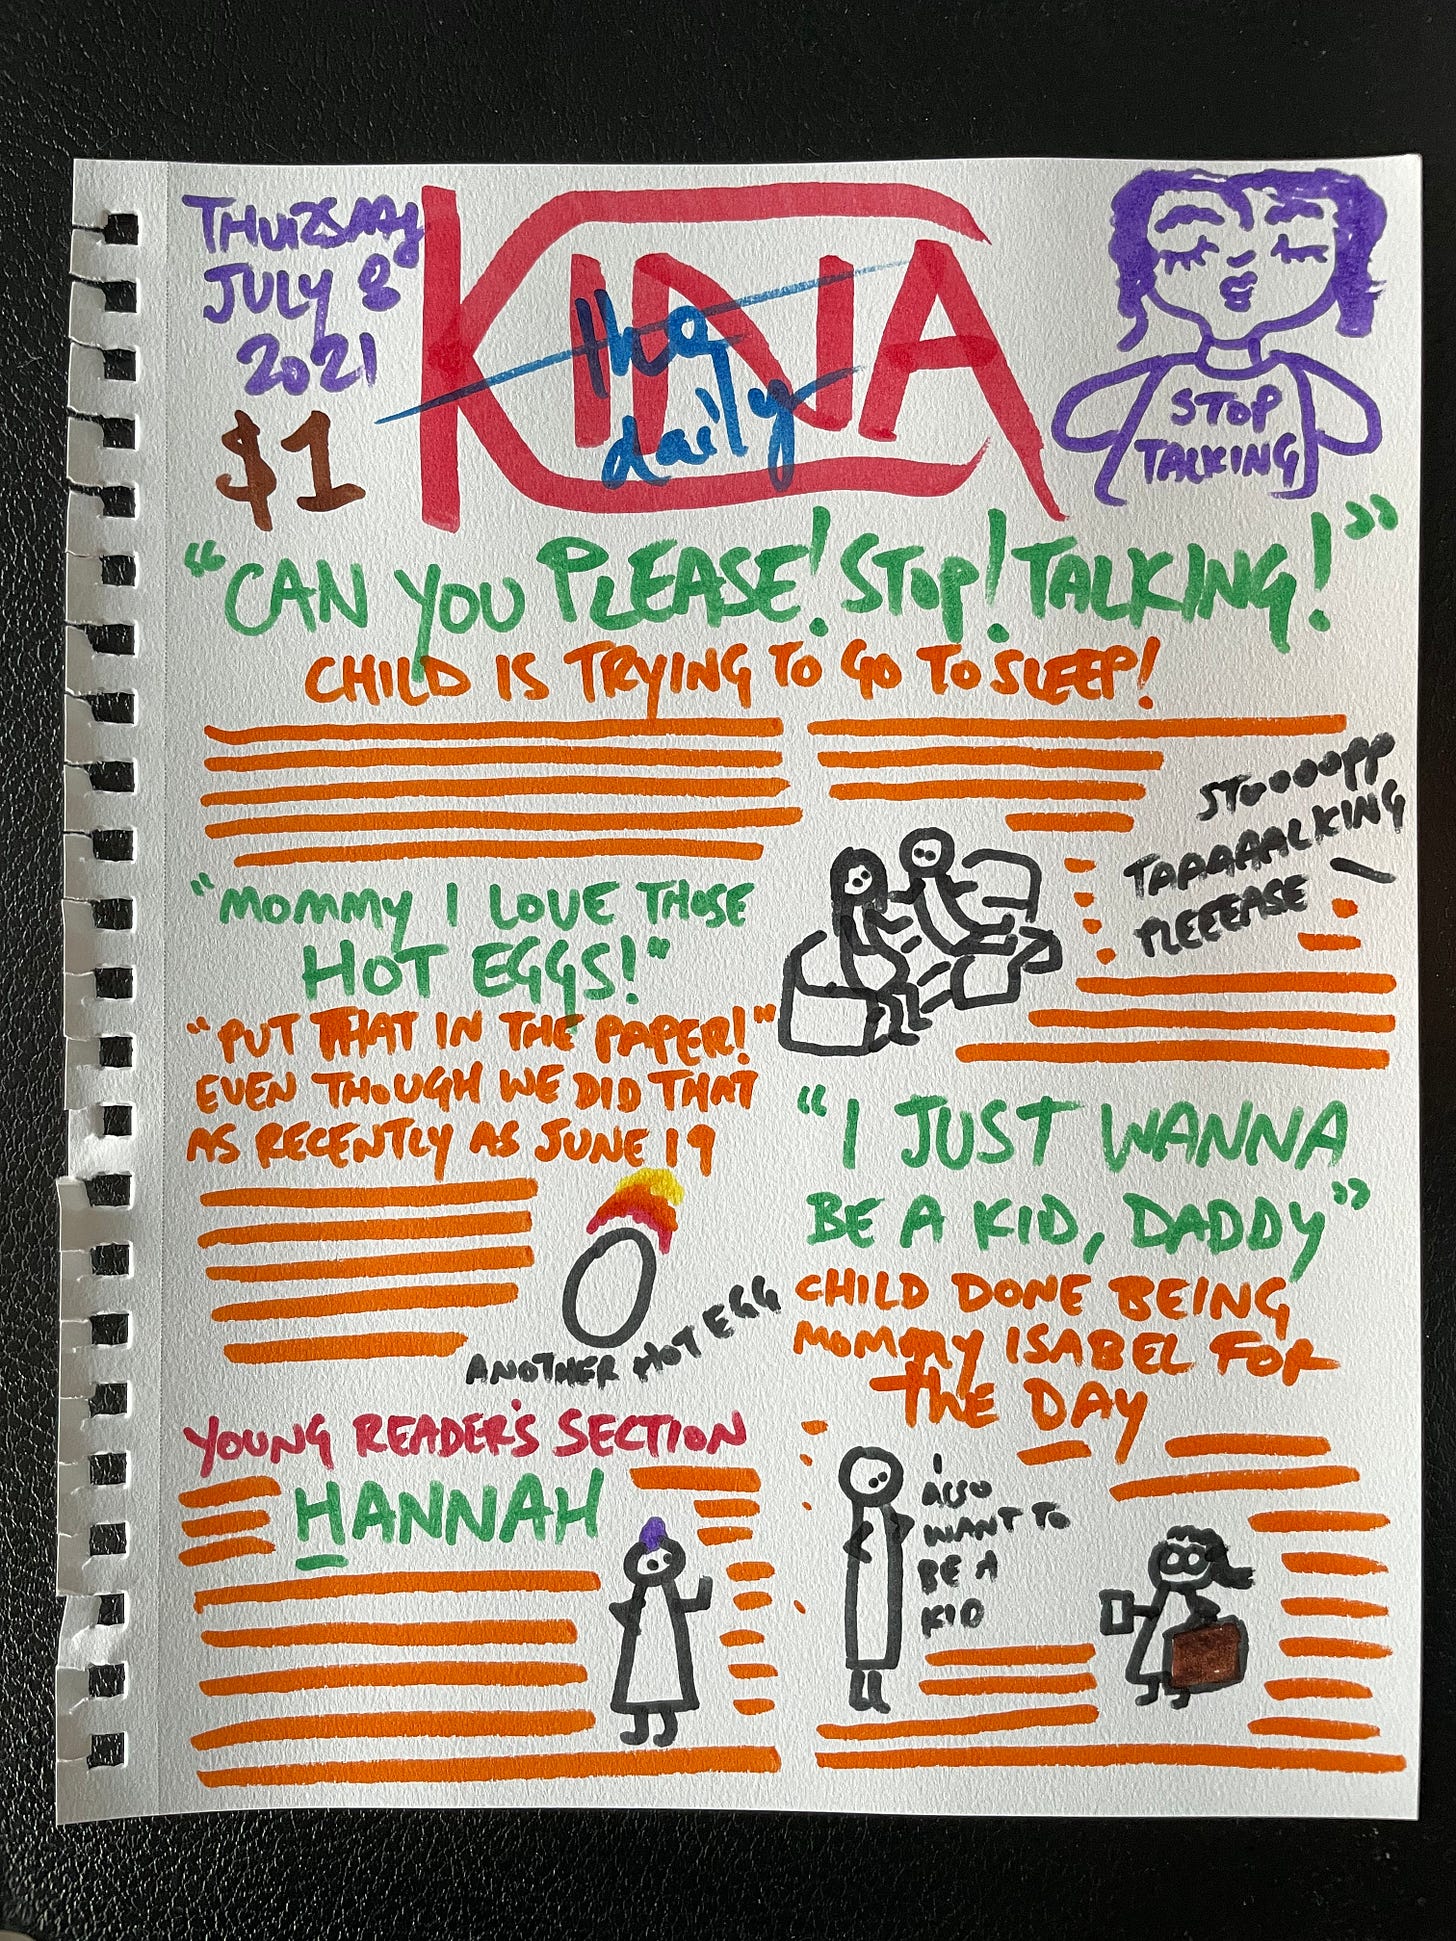 THURSDAY
JULY 8
2021
$1
KINA
the
daily
STOP
TALKING
"CAN YOU PLEASE! STOP! TALKING!"
CHILD IS TRYING TO GO TO SLEEP!
STOOOOPP
TAAAAALKING
PLEEEASE
"MOMMY I LOVE THOSE
HOT EGGS!"
"PUT THAT IN THE PAPER!"
EVEN THOUGH WE DID THAT
AS RECENTLY AS JUNE 19
ANOTHER HOT EGG
"I JUST WANNA
BE A KID, DADDY"
CHILD DONE BEING
MOMMY ISABEL FOR
THE DAY
I
ALSO
WANT TO
BE A
KID
YOUNG READER'S SECTION
HANNAH